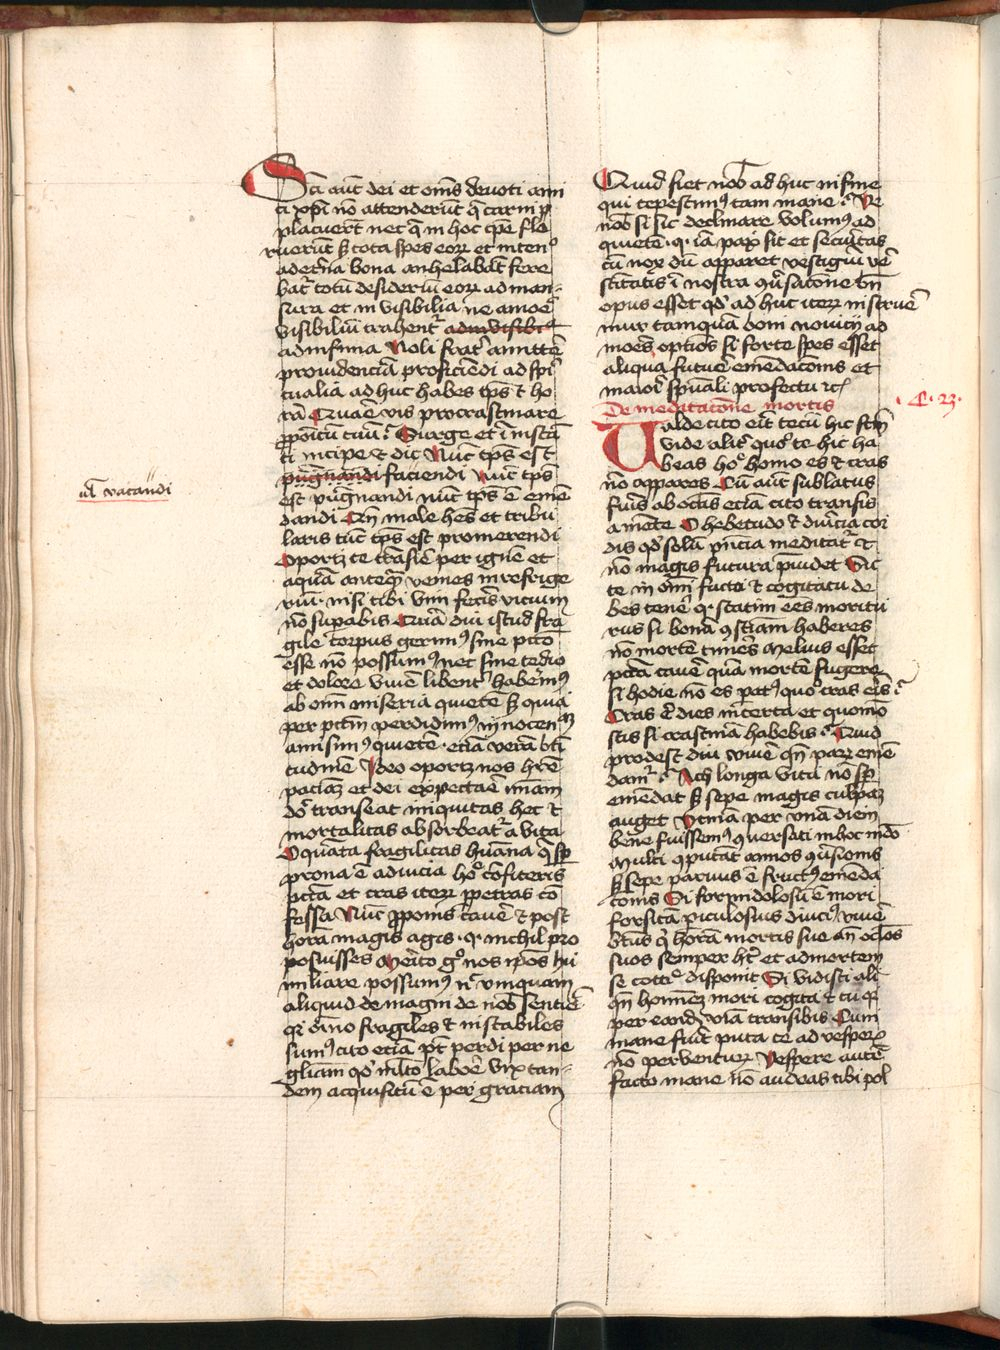 Sci aut dei et oms devoti ami
ci xpi no attenderut q carni p
placuert nec q in hoc tpe flo
ruerut s tota spes eorz et inten
ad eterna bona anhelabat fere
bat totu desideriu eorz ad man-
sura et in visibilia ne amore
visibiliu trahent ad invisibi
ad infima Noli frat amitte
providencia proficiendi ad spi
tualia ad huc habes tps et ho
ra Quare vis procrastinare
ppoitu tuu Surge et i insta
ti incipe et dic Nuc tps est
pugnandi faciendi Nuc tps
ul vacandi
est pugnandi nuc tps e eme
dandi Qn male hes et tribu
laris tuc tps est promerendi
Oportz te transire per igne et
aqua anteq venies in refrige
riu nisi tibi vim feceris viciu
no supabis Qua diu istud fra
gile corpus gerim sine pcco
esse no possum nec sine tedio
et dolore vive libent haberem
ab omi miseria quiete s quia
per pctm perdidim innocen
amisim quiete etia vera bti
tudine Ideo oportz nos hre
paciaz et dei expectare miam
do transeat iniquitas hec et
mortalitas absorbeat a vita
O quata fragilitas huana q sp
prona e ad vicia ho confiteris
pcta et cras iterz ppetras co
fessa Nuc pponis cavere et post
hora magis agis q nichil pro
posuisses Merito g nos ipos hu
miliare possum nec unquam
aliquid de magni de nob sentire
q omo fragiles et instabiles
sum cito etia pt perdi per ne
gliam qd mlto labore vix tan-
dem acquisitu e per graciam
Quid fiet nob ad huc in fine
qui tepescim tam mane Ve
nob si sic declinare volum ad
quiete q ia pax sit et securitas
cu nox du apparet vestigiu ve
sctitatis i nostra qsacone bn
opus esset qd ad huc iterz instrue
mur tamqua boni novicij ad
mores optios si forte spes esset
aliqua future emedacois et
maior spuali profectu rc
De meditacone mortis
C. 23.
Valde cito erit tecu hic fcm
vide alit quo te hic ha
beas ho homo es et cras
no appares Cu aut sublatus
fuis ab oclis ecia cito transis
a mete O hebetudo et duricia cor
dis qd solu pncia meditat et
no magis futura pvidet Sic
te in omi facto et cogitatu de
bes tene q statim ees moritu
rus si bona cosciam haberes
no morte timeres Melius esset
pcta cavere qua morte fugere
si hodie no es pat quo cras eris
Cras e dies incerta et quomo
scis si crastina habebis Quid
prodest diu vive qn parz eme
dam Ach longa vita no sp
emedat s sepe magis culpaz
auget Utina per una diem
bene fuissem conversati in hoc mdo
Multi coputat annos cosionis
s sepe parvus e fruct emeda
conis Si formidolosu e mori
forsita piculosius diuci vive
Btus q hora mortis sue an oclos
suos semper ht et ad mortem
se cottie disponit Si vidisti ali
qn hominez mori cogita et tu q
per eandz via transibis Cum
mane fuit puta te ad vesperz
no perventurz Vespere aute
facto mane no audeas tibi pol